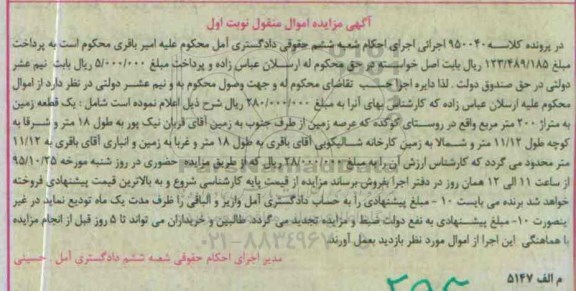 آگهی مزایده اموال منقول نوبت اول
در پرونده کلاسه ۹۵۰۰۴۰ اجرائی اجرای احکام شعبه ششم حقوقی دادگستری آمل محکوم علیه امیر باقری محکوم است به پرداخت
مبلغ ۱۲۳/۴۸۹/۱۸۵ ریال بابت اصل خواسته در حق محکوم له ارسلان عباس زاده و پرداخت مبلغ ۵/۰۰۰/۰۰۰ ریال بابت نیم عشر
دولتی در حق صندوق دولت . لذا دایره اجرا حسب تقاضای محکوم له و جهت وصول محکوم به و نیم عشر دولتی در نظر دارد از اموال
محکوم علیه ارسلان عباس زاده که کارشناس بهای آنرا به مبلغ ۲۸۰/۰۰۰/۰۰۰ ریال شرح ذیل اعلام نموده است شامل : یک قطعه زمین
به متراژ ۲۰۰ متر مربع واقع در روستای گوگده که عرصه زمین از طرف جنوب به زمین آقای قربان نیک پور به طول ۱۸ متر و شرقا به
کوچه طول ۱۱/۱۲ متر و شمالا به زمین کارخانه شالیکوبی آقای باقری به طول ۱۸ متر و غربا به زمین و انباری آقای باقری به ۱۱/۱۲
متر محدود می گردد که کارشناس ارزش آن را به مبلغ ۲۸/۰۰۰/۰۰۰ ریال که از طریق مزایده حضوری در روز شنبه مورخه ۹۵/۱۰/۲۵
از ساعت ۱۱ الی ۱۲ همان روز در دفتر اجرا بفروش برساند مزایده از قیمت پایه کارشناسی شروع و به بالاترین قیمت پیشنهادی فروخته
خواهد شد برنده می بایست ۱۰- مبلغ پیشنهادی را به حساب دادگستری آمل واریز و الباقی را ظرف مدت یک ماه تودیع نماید در غیر
ینصورت ۱۰- مبلغ پیشنهادی به نفع دولت ضبط و مزایده تجدید می گردد. طالبین و خریداران می تواند تا ۵ روز قبل از انجام مزایده
با هماهنگی این اجرا از اموال مورد نظر بازدید بعمل آورند
مدیر اجرای احکام حقوقی شعبه ششم دادگستری آمل حسینی
م الف ۵۱۴۷